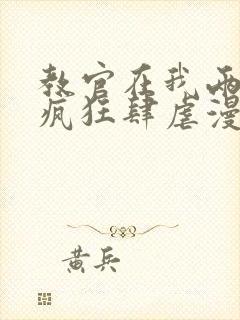 教官在我两
疯狂肆虐漫
黄兵